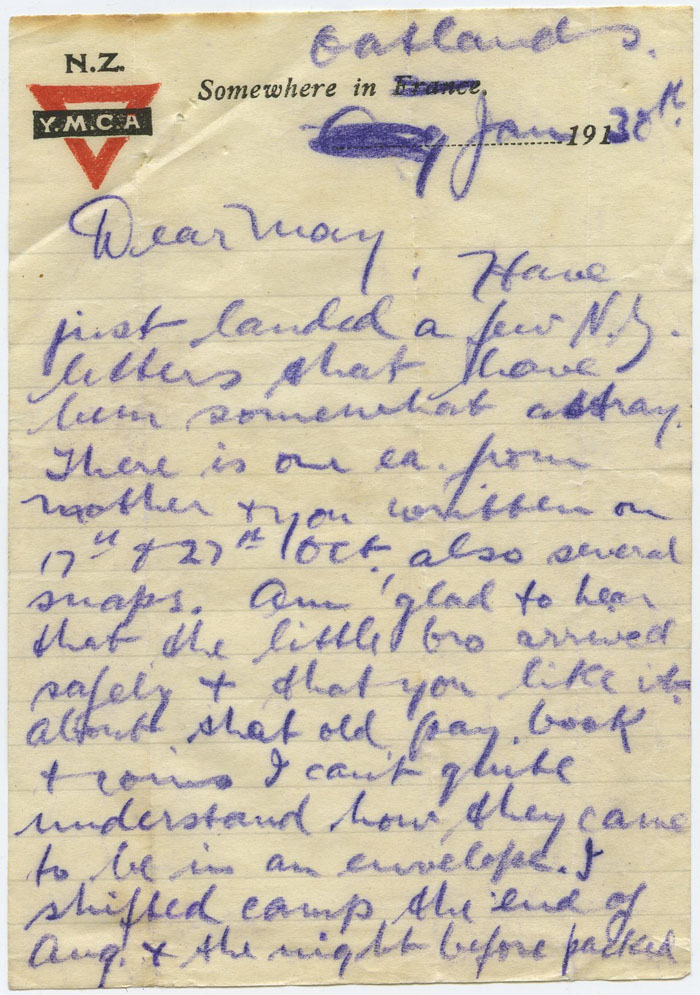 Oatlands.
N.Z.
Y.M.C.A
Somewhere in France.
Jan 191 30th
Dear May,
Have
just landed a few N.Z.
letters that have
been somewhat astray.
There is one ea. from
mother & you written on
17th & 27th Oct, also several
snaps. Am glad to hear
that the little bro arrived
safely & that you like it.
About that old pay book
& coins I can't quite
understand how they came
to be in an envelope. I
shifted camp the end of
Aug. & the night before packed